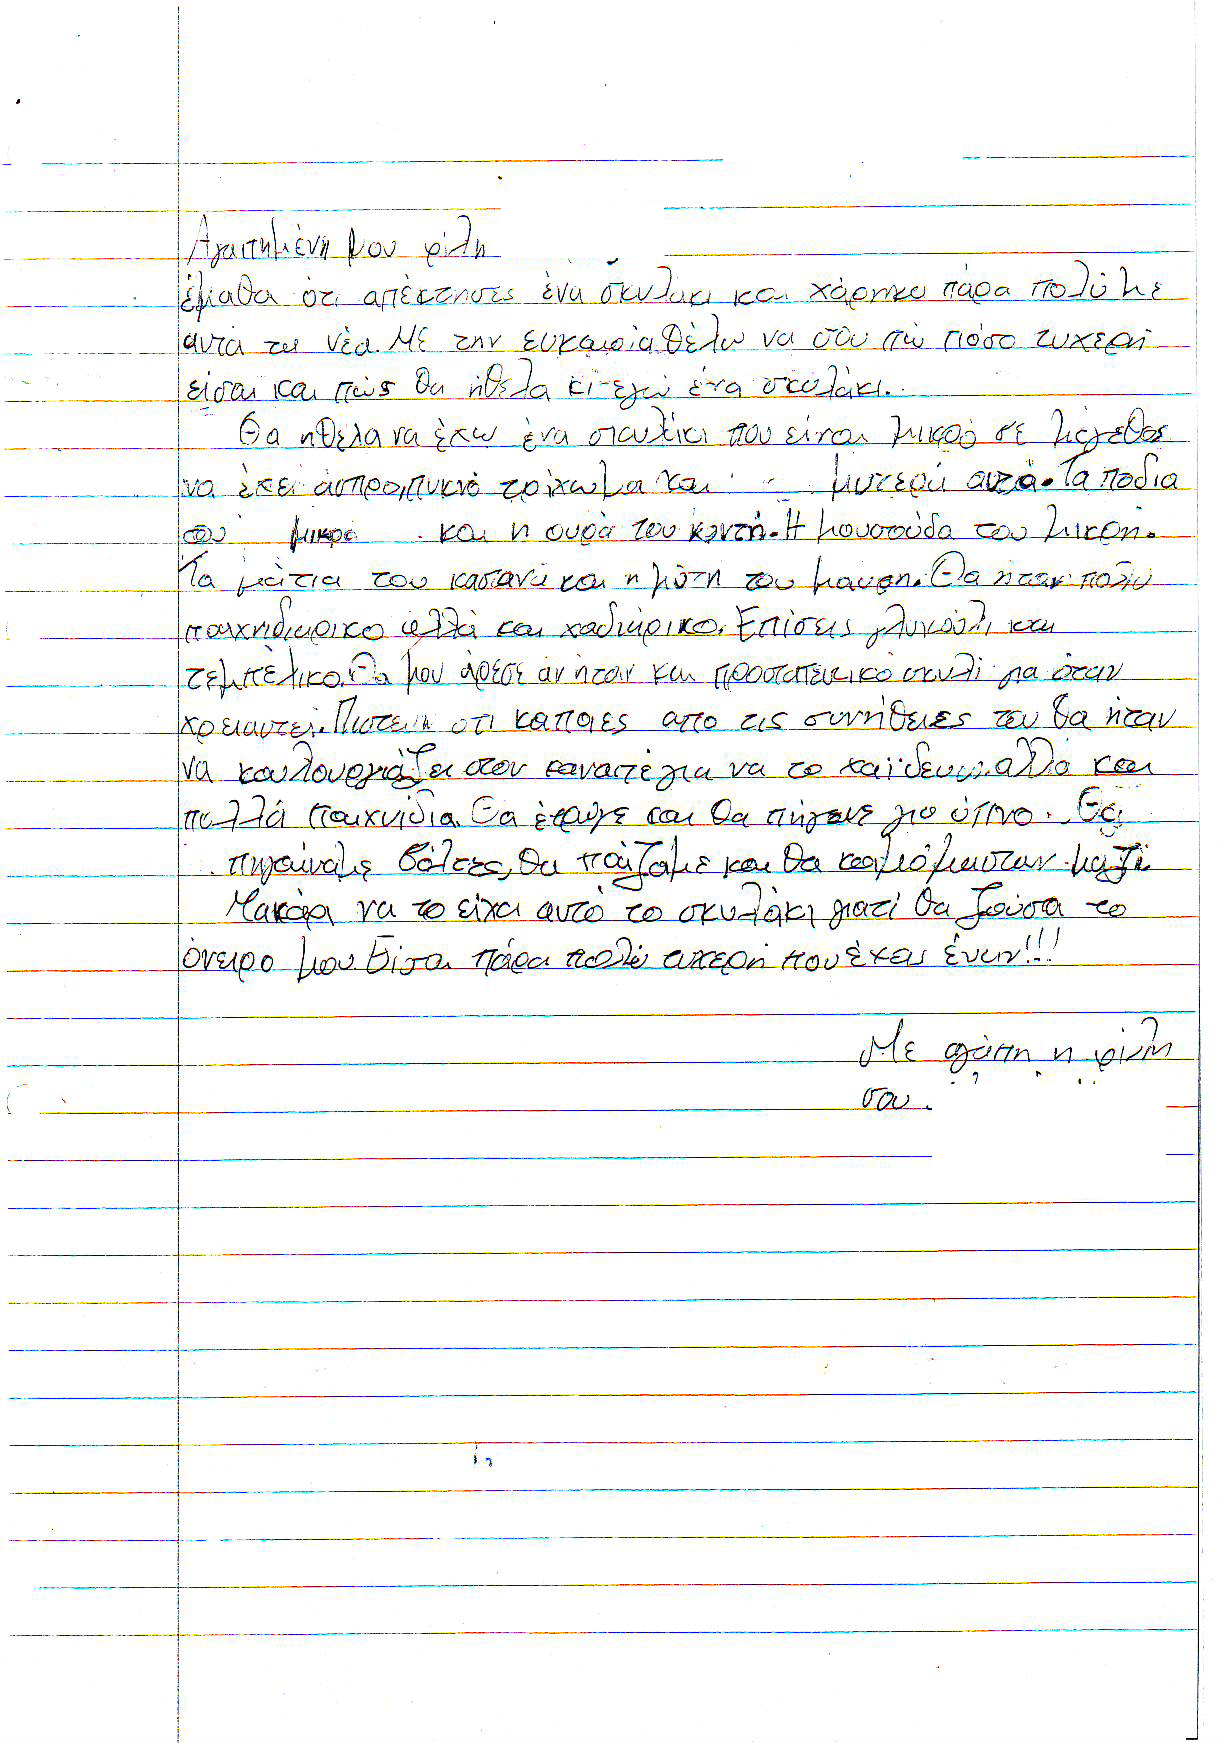 Αγαπημένη μου φίλη
έμαθα ότι απέκτησες ένα σκυλάκι και χάρηκα πάρα πολύ με
αυτά τα νέα. Με την ευκαιρία θέλω να σου πω πόσο τυχερή
είσαι και πώς θα ήθελα κι εγώ ένα σκυλάκι.
Θα ηθελα να έχω ένα σκυλάκι που είναι μικρό σε μέγεθος
να έχει άσπρο, πυκνό τρίχωμα και μυτερά αυτιά. Τα ποδια
του μικρα και η ουρά του κοντή. Η μουσούδα του μικρή.
Τα μάτια του καστανά και η μύτη του μαυρη. Θα ηταν πολύ
παιχνιδιαρικο αλλά και χαδιάρικο. Επίσεις γλυκούλι και
τεμπέλικο. Θα μου άρεσε αν ήταν και προστατευτικό σκυλί για όταν
χρειαστεί. Πιστευω οτι καποιες απο τις συνήθειες του θα ήταν
να κουλουργιάζει στον καναπέ για να το χαϊδευω. αλλά και
πολλά παιχνίδια. Θα έτρωγε και θα πήγαινε για ύπνο. Θα
πηγαίναμε βόλτες, θα παίζαμε και θα κοιμόμασταν μαζί
Μακάρι να το είχα αυτό το σκυλάκι γιατί θα ζούσα το
όνειρο μου. Είσαι πάρα πολύ τυχερή που έχεις έναν!!!
Με αγάπη η φίλη
σου.